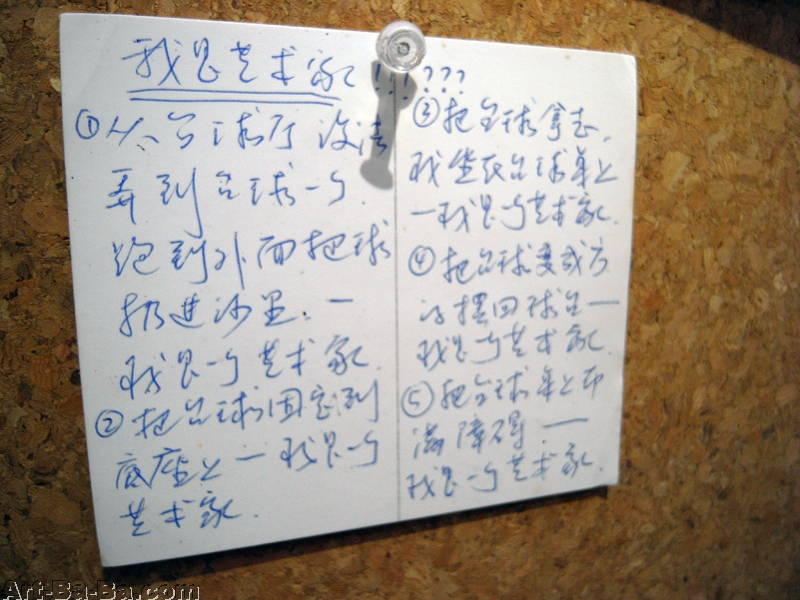 我是艺术家!!!???
①从台球厅设法
弄到台球一个.
跑到外面把球
扔进沙里.一
我是个艺术家.
②把台球固定到
底座上一我是个
艺术家.
③把台球拿走,
我坐在台球桌上
一我是个艺术家.
④把台球变成方
的摆回球台一
我是个艺术家.
⑤把台球桌上布
满障碍.一
我是个艺术家.
Art-Ba-Ba.com